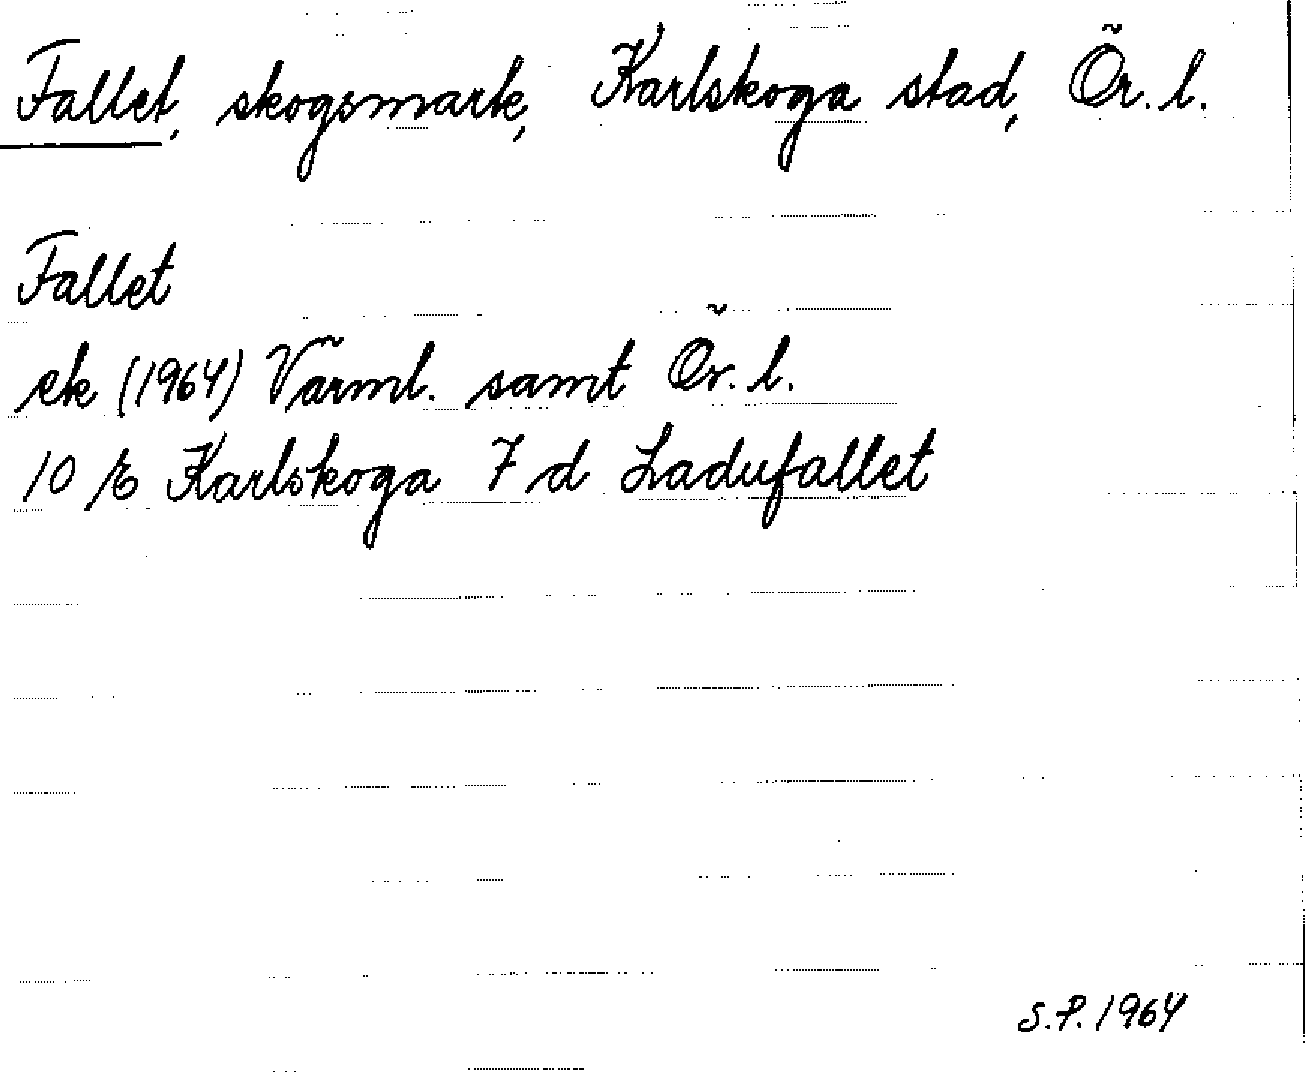 Fallet, skogsmark, Karlskoga stad, Ör. l.
Fallet
ek (1964) Värml. samt Ör. l.
10 E Karlskoga 7 d Ladufallet
S.P. 1964